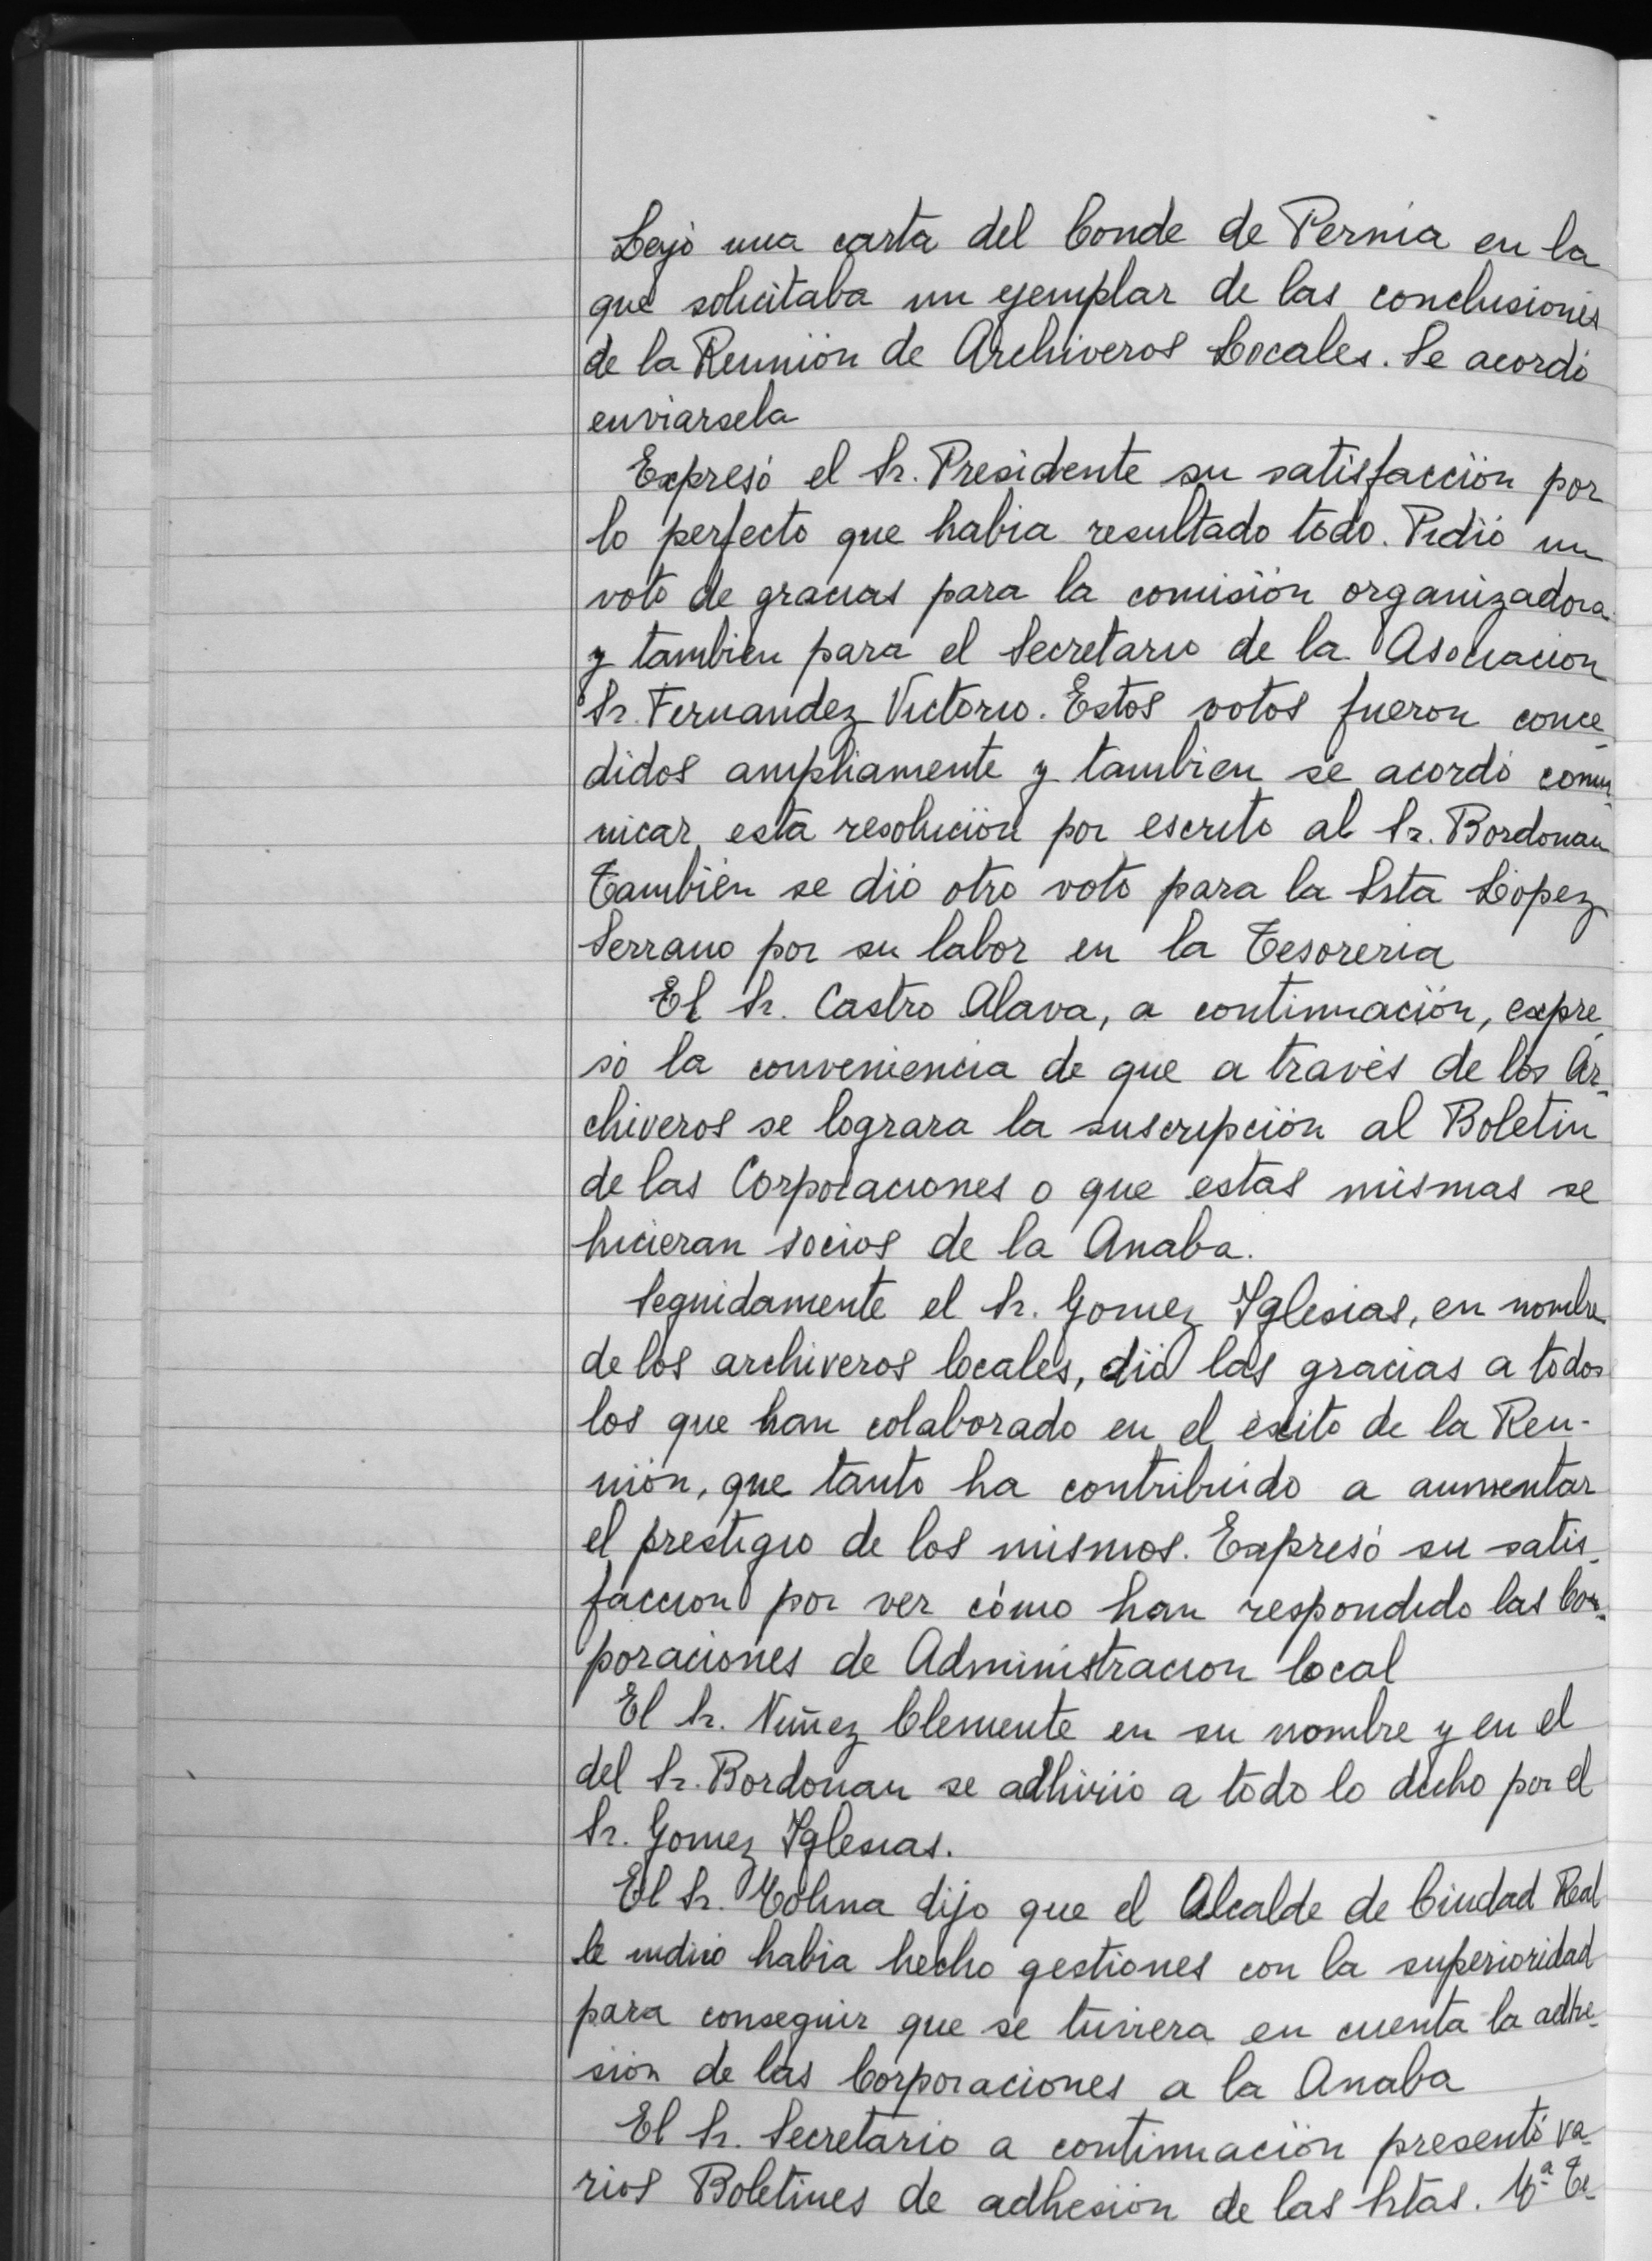 Leyó una carta del Conde de Pernía en la
que solicitaba un ejemplar de las conclusiones
de la Reunión de Archiveros Locales. Se acordó
enviarsela
Expresó el Sr. Presidente su satisfacción por
lo perfecto que habia resultado todo. Pidió un
voto de gracias para la comisión organizadora
y tambien para el Secretario de la Asociacion
Sr. Fernandez Victorio. Estos votos fueron conce-
didos ampliamente y tambien se acordó comu-
nicar esta resolución por escrito al Sr. Bordonau
También se dió otro voto para la Srta López
Serrano por su labor en la Tesoreria
El Sr. Castro Alava, a continuación, expre-
só la conveniencia de que a través de los Ar-
chiveros se lograra la suscripción al Boletin
de las Corporaciones o que estas mismas se
hicieran socios de la Anaba.
Seguidamente el Sr. Gomez Yglesias, en nombre
de los archiveros locales, dió las gracias a todos
los que han colaborado en el éxito de la Reu-
nión, que tanto ha contribuido a aumentar
el prestigio de los mismos. Expresó su satis-
faccion por ver cómo han respondido las Cor-
poraciones de Administracion local
El Sr. Nuñez Clemente en su nombre y en el
del Sr. Bordonau se adhirió a todo lo dicho por el
Sr. Gomez Yglesias.
El Sr. Molina dijo que el Alcalde de Ciudad Real
le indicó habia hecho gestiones con la superioridad
para conseguir que se tuviera en cuenta la adhe-
sión de las Corporaciones a la Anaba
El Sr. Secretario a continuación presentó va-
rios Boletines de adhesión de las Srtas. Mª Te-